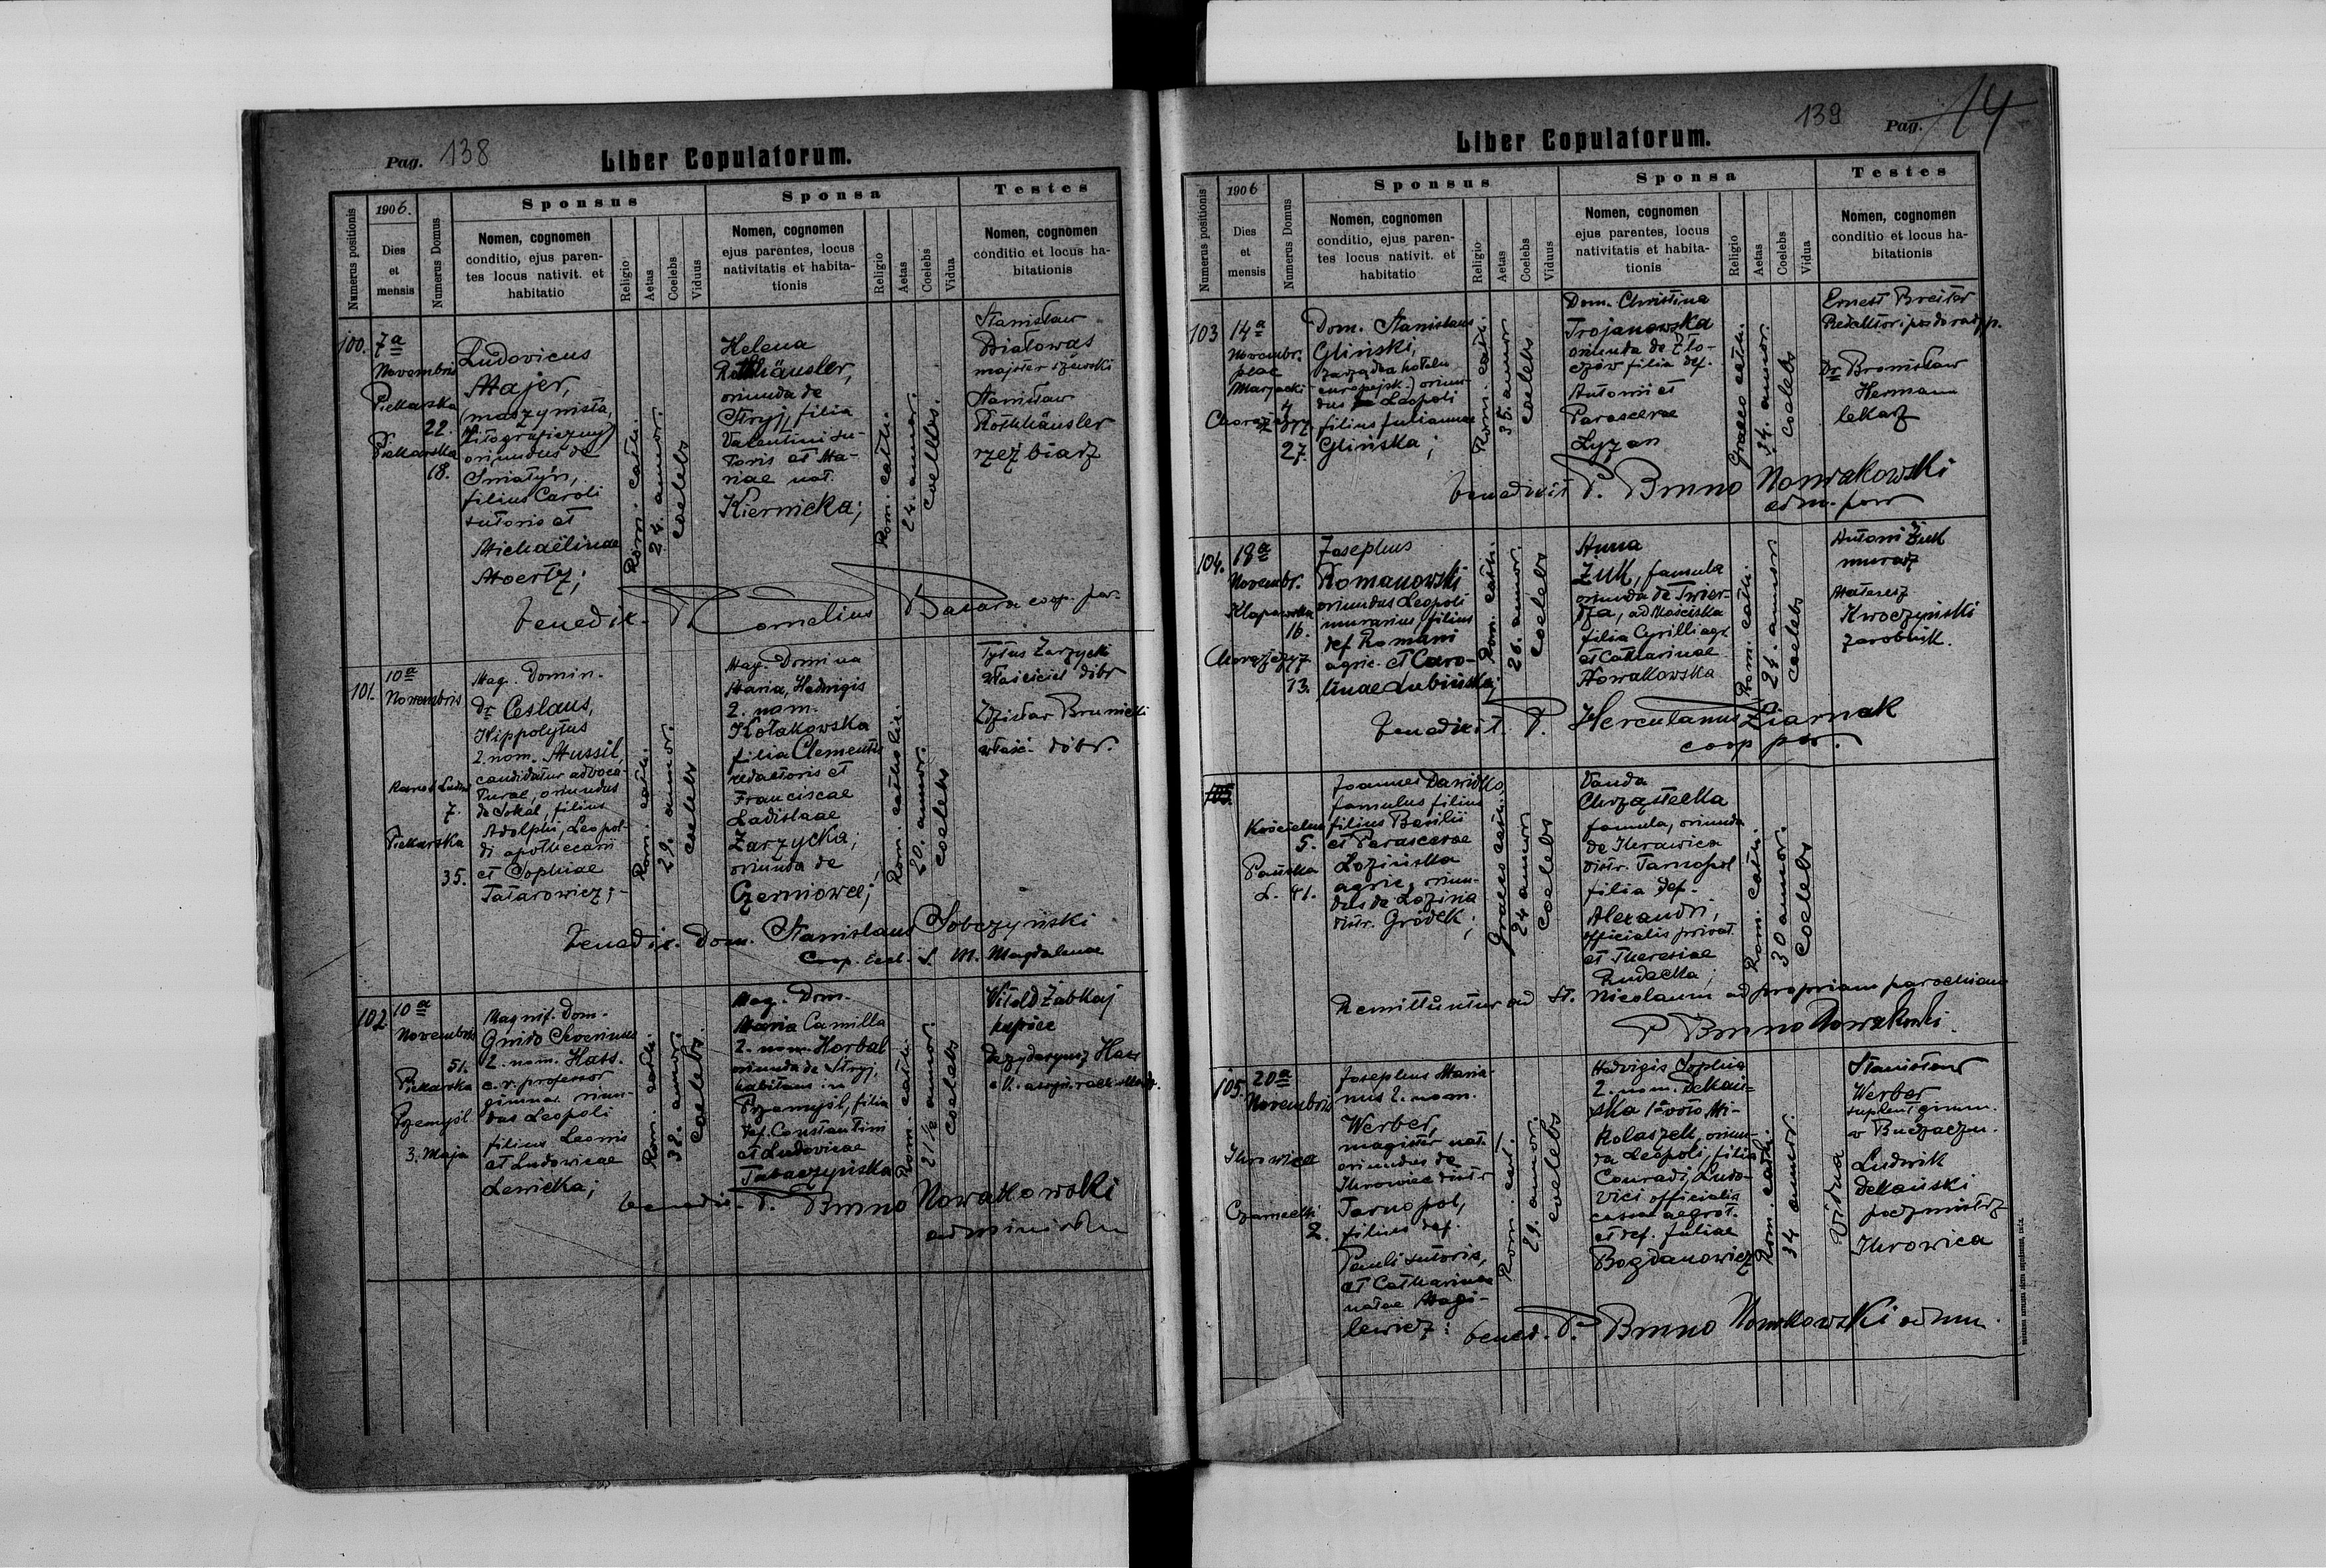 Pag. 138
Liber Copulatorum.
Numerus positionis
1906.
Dies
et
mensis
Numerus Domus
Sponsus
Nomen, cognomen
conditio, ejus paren-
tes locus nativit. et
habitatio
Religio
Aetas
Coelebs
Viduus
Sponsa
Nomen, cognomen
ejus parentes, locus
nativitatis et habita-
tionis
Religio
Aetas
Coelebs
Vidua
Testes
Nomen, cognomen
conditio et locus ha-
bitationis
100.
7a
Novembris
Piekarska
22.
Piekarska
18.
Ludovicus
Majer,
(maszynista
litograficzny)
oriundus de
Śniatyń,
filius Caroli
sutoris et
Michaëlinae
Moertz;
Rom. cath.
24. annor.
coelebs
Helena
Rothhäusler,
oriunda de
Stryj, filia
Valentini su-
toris et Ma-
riae nat.
Kiernicka;
Rom. cath.
24. annor.
coelebs.
Stanisław
Białowąs
majster szewski
Stanisław
Rothhäusler
rzeźbiarz
benedix. P. Cornelius coop. par.
101.
10a
Novembris
7.
Piekarska
35.
Mag. Domin.
Dr Ceslaus,
Hippolytus
2. nom. Mussil,
candidatur advoca-
turae, oriundus
de Sokal, filius
Adolphi, Leopol-
di apothecarii
et Sophiae
Tatarowicz;
Rom. cath.
29. annor.
coelebs
Mag. Domina
Maria, Hedvigis
2. nom.
Kołakowska
filia Clementis
redactoris et
Franciscae
Ladislaae
Zarzycka;
oriunda de
Czerniowce;
Rom. catholic.
20. annor.
coelebs
Tytus Zarzycki
właściciel dóbr
Zdzisław Brunicki
właśc. dóbr.
benedix. Dom. Stanislaus Sobczyński
Coop. eccl. S. M. Magdalenae
102
10a
Novembris
51.
Piekarska
Przemyśl
3. Maja
Magnif. Dom.
Guido Severinus
2. nom. Hass.
c. r. professor
gimnas. oriun-
dus Leopoli
filius Leonis
et Ludovicae
Lewicka;
Rom. cath.
38. annor.
coelebs.
Mag. Dom.
Maria Camilla
2. nom. Horbal
oriunda de Stryj,
habitans in
Przemyśl, filia
def. Constantini
et Ludovicae
Tabaczyńska
Rom. cath.
21½ annor.
coelebs
Witold
kupiec
Dezyderyusz Hass
benedix. P. Bruno Nowakowski
139
Pag. 14
Liber Copulatorum.
Numerus positionis
1906
Dies
et
mensis
Numerus Domus
Sponsus
Nomen, cognomen
conditio, ejus paren-
tes locus nativit. et
habitatio
Religio
Aetas
Coelebs
Viduus
Sponsa
Nomen, cognomen
ejus parentes, locus
nativitatis et habita-
tionis
Religio
Aetas
Coelebs
Vidua
Testes
Nomen, cognomen
conditio et locus ha-
bitationis
103
14a
Novembr.
plac
Maryacki
4
27.
Dom. Stanislaus
Gliński,
zarządca hotelu
europejsk.) oriun-
dus Leopoli
filius Julianna
Glińska;
Rom. cath.
35. annor
coelebs
Dom. Christina
Trojanowska
oriunda de Zło-
czów filia def.
Antonii et
Parascevae
Łyzan
Graeco cath.
34. annor.
coelebs
Ernest Breiter
Redaktor i poseł do rady p.
Dr Bronisław
Hermann
lekarz
benedixit P. Bruno Nowakowski
adm. par
104.
18a
Novembr.
Kleparowska
16.
Chorążczyz
13.
Josephus
Romanowski
oriundus Leopoli
murarius filius
def Romani
agric. et Caro-
linae Łubińska;
Rom. cath.
26. annor.
coelebs
Anna
Żuk, famula
oriunda de Twier-
dza, ad Mościska
filia Cyrilli agr.
et Catharinae
Nowakowska
Rom. cath.
24. annor
coelebs
Antoni Żuk
murarz
Mateusz
Kwoczyński
zarobnik.
benedixit P. Herculanus Ziarnek
coop par.
105.
Kościelna
5.
Pańska
L. 41.
Joannes Dawidko
famulus filius
filius Basilii
et Parascevae
Łozińska
agric. oriun-
dus de Łozina
distr. Gródek;
Graeco cath.
24 annor
coelebs
Vanda
Chrząstecka
famula, oriunda
de Ihrowica
distr. Tarnopol
filia def.
Alexandri,
officialis privat.
et Theresiae
Rudecka;
Rom. cath.
30 annor.
coelebs
Remittuntur ad St. Nicolaum ad propriam parochiam
P Bruno Nowakowski.
105.
20a
Novembris
Ihrowica
Czarnecki
2.
Josephus Maria-
nus 2. nom.
Werber,
magister nat.
oriundus de
Ihrowice distr
Tarnopol,
filius def.
Pauli sutoris,
et Catharinae
natae Magi-
lewicz:
Rom. cat.
29. annor.
coelebs
Hedvigis Sophia
2. nom. Dekań-
ska 1o voto Mi-
kolaszek, oriun-
da Leopoli, filia
Conradi, Ludo-
vici officialis
cassae aegrot.
et def. Juliae
Bogdanowicz
Rom. cath.
34 annor.
Vidua
Stanisław
Werber
suplent gimn.
w Buczaczu.
Ludwik
Dekański
poczmistrz
Ihrowica
bened. P. Bruno Nowakowski adm.